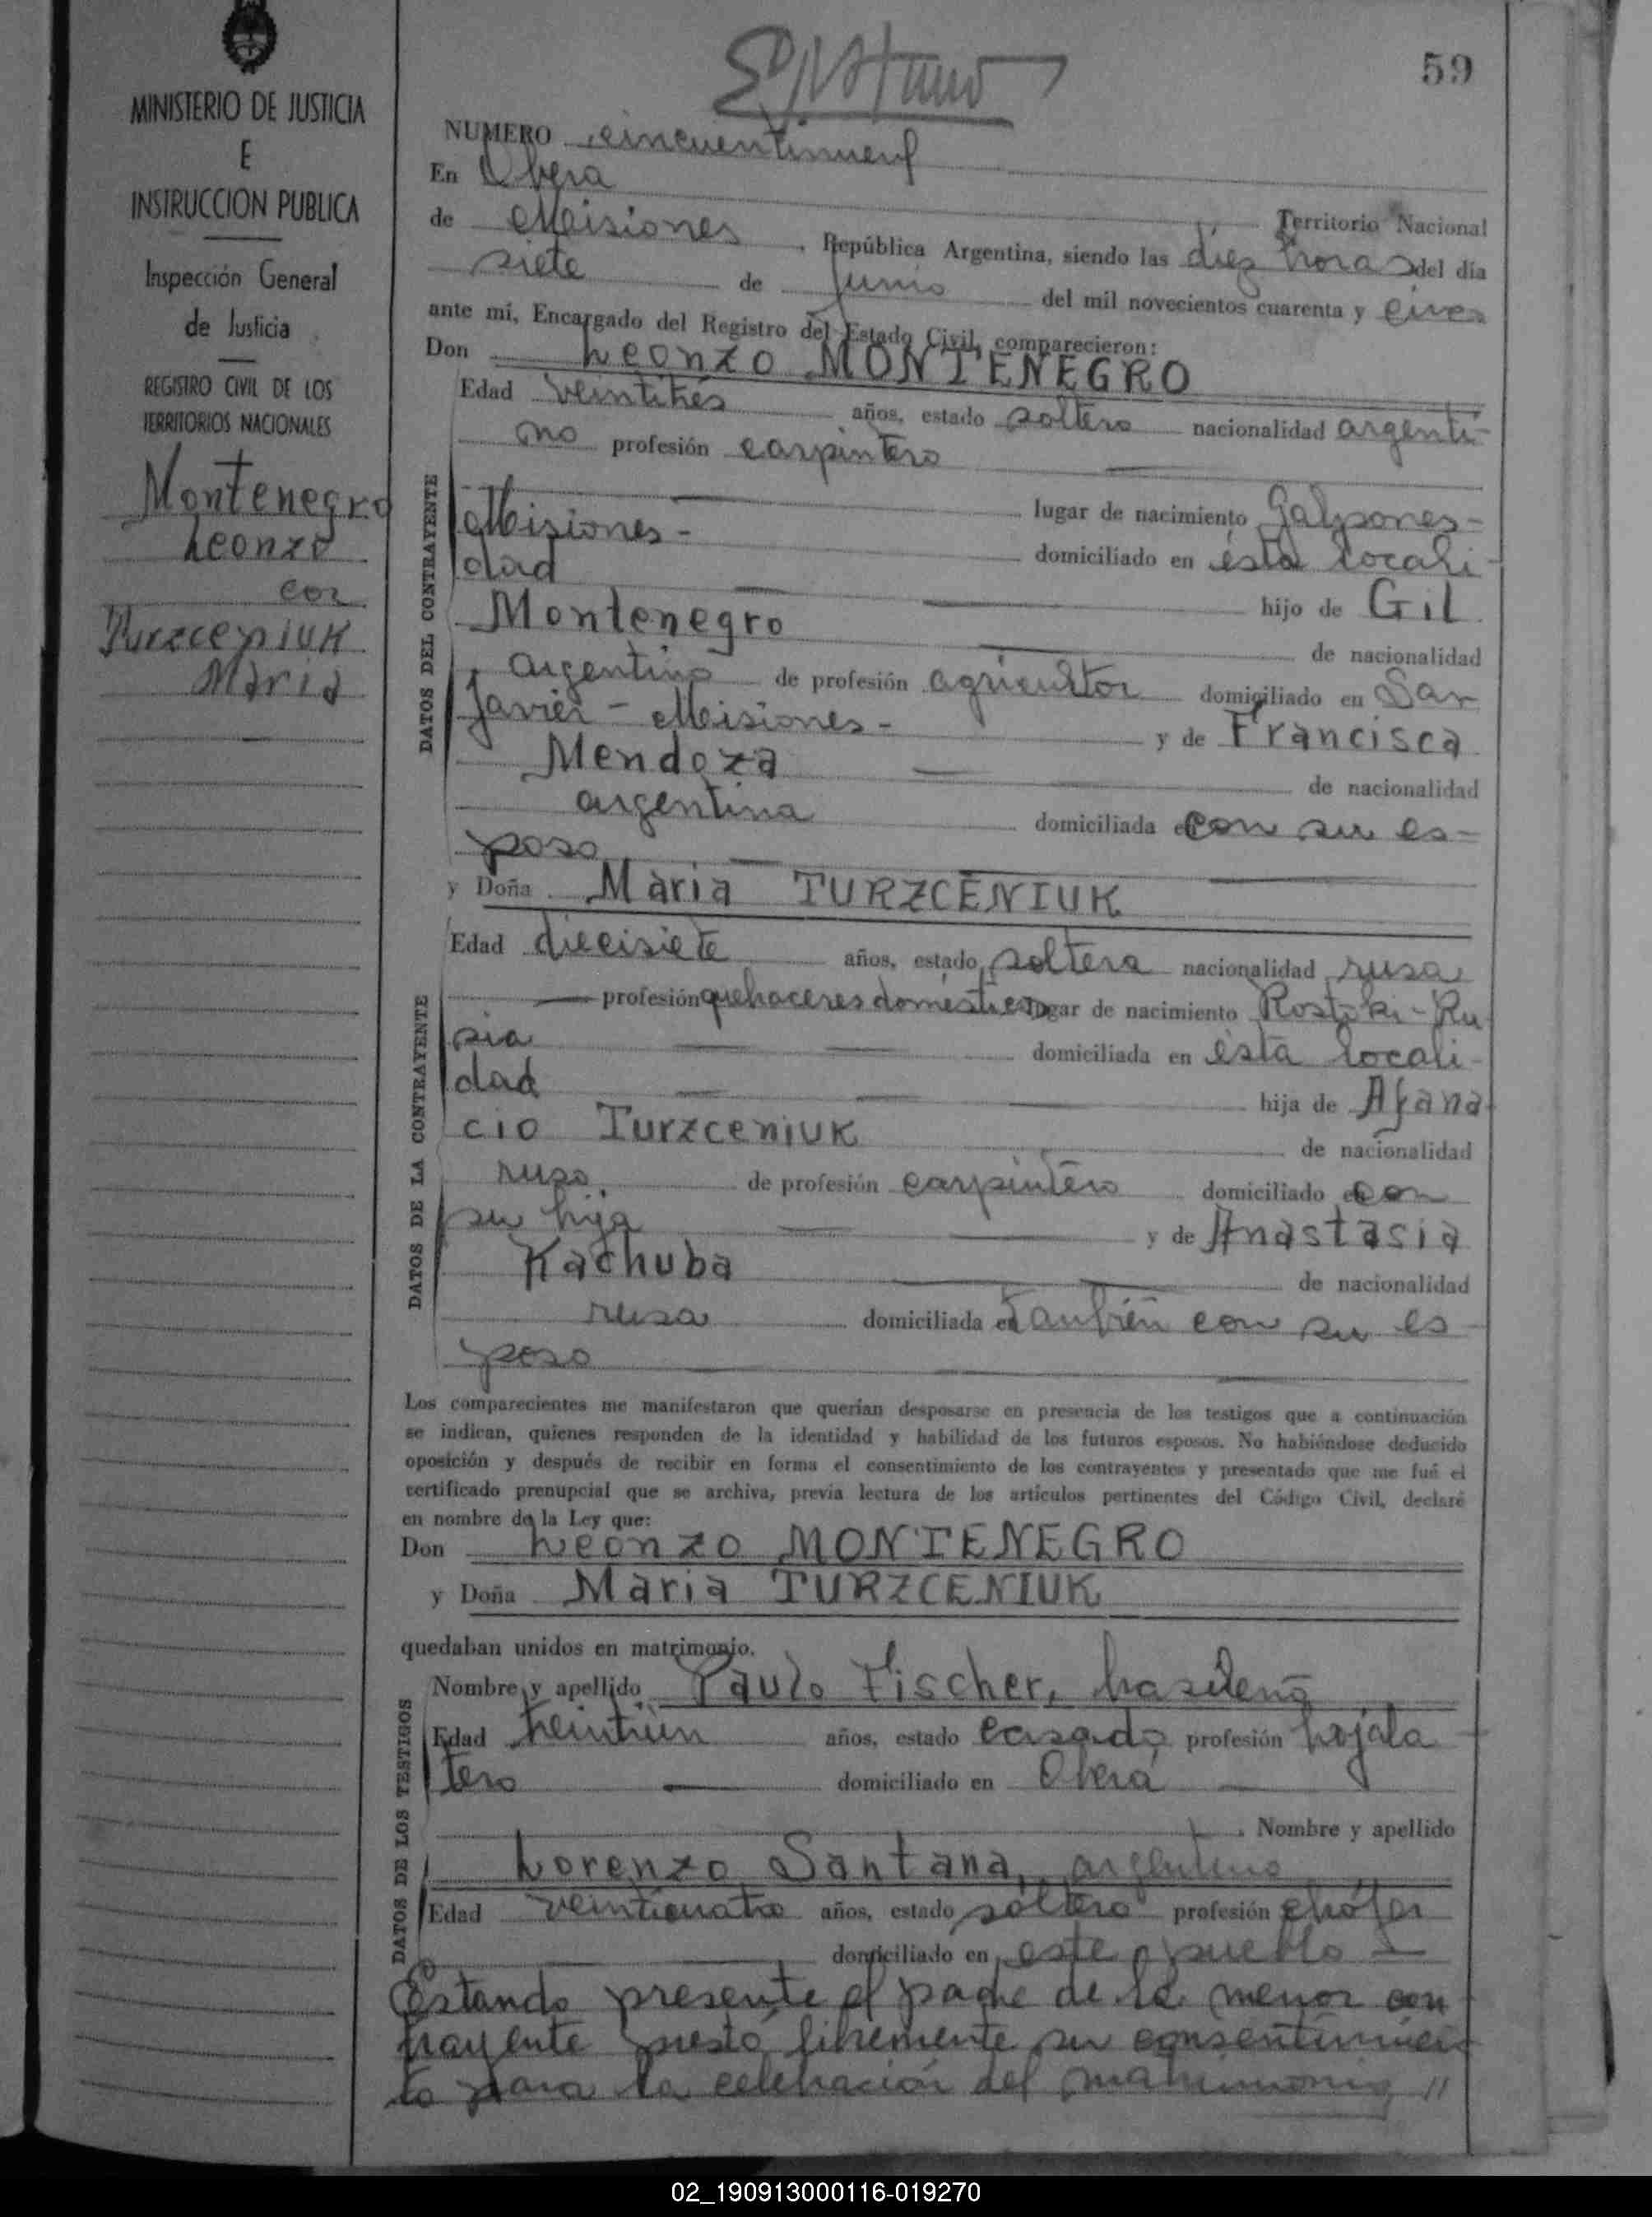 59
MINISTERIO DE JUSTICIA
E
INSTRUCCION PUBLICA
Inspección General
de Justicia
REGISTRO CIVIL DE LOS
TERRITORIOS NACIONALES
Montenegro
Leonzo
con
Turzceniuk
Maria
NUMERO cincuentinueve
En Obera
Territorio Nacional
de Misiones, República Argentina, siendo las diez horas del día
siete de junio del mil novecientos cuarenta y
ante mí, Encargado del Registro del Estado Civil, comparecieron:
Don Leonzo MONTENEGRO
Edad veintitrés años, estado soltero nacionalidad argenti-
no profesión carpintero
lugar de nacimiento Galpones-
Misiones- domiciliado en ésta locali-
dad
hijo de Gil
Montenegro de nacionalidad
argentino de profesión agricultor domiciliado en San
Javier - Misiones - y de Francisca
Mendoza de nacionalidad
argentina domiciliada en con su es-
poso
y Doña Maria TURZCENIUK
Edad diecisiete años, estado soltera nacionalidad rusa
profesión quehaceres domésticos lugar de nacimiento Rostoki-Ru-
sia domiciliada en ésta locali-
dad hija de Afana-
cio Turzceniuk de nacionalidad
ruso de profesión carpintero domiciliado en con
su hija y de Anastasia
Kachuba de nacionalidad
rusa domiciliada en tanbién con su es-
poso
Los comparecientes me manifestaron que querían desposarse en presencia de los testigos que a continuación
se indican, quienes responden de la identidad y habilidad de los futuros esposos. No habiéndose deducido
oposición y después de recibir en forma el consentimiento de los contrayentes y presentado que me fué el
certificado prenupcial que se archiva, previa lectura de los artículos pertinentes del Código Civil, declaré
en nombre de la Ley que:
Don Leonzo MONTENEGRO
y Doña Maria TURZCENIUK
quedaban unidos en matrimonio.
Nombre y apellido Paulo Fischer, brasileño
Edad treintiún años, estado casado profesión hojala
tero domiciliado en Oberá
Nombre y apellido
Lorenzo Santana, argentino
Edad veinticuatro años, estado soltero profesión chófer
domiciliado en este pueblo
Estando presente el padre de la menor con
trayente prestó libremente su consentimien
to para la celebración del matrimonio //
DATOS DEL CONTRAYENTE
DATOS DE LA CONTRAYENTE
DATOS DE LOS TESTIGOS
02_190913000116-019270